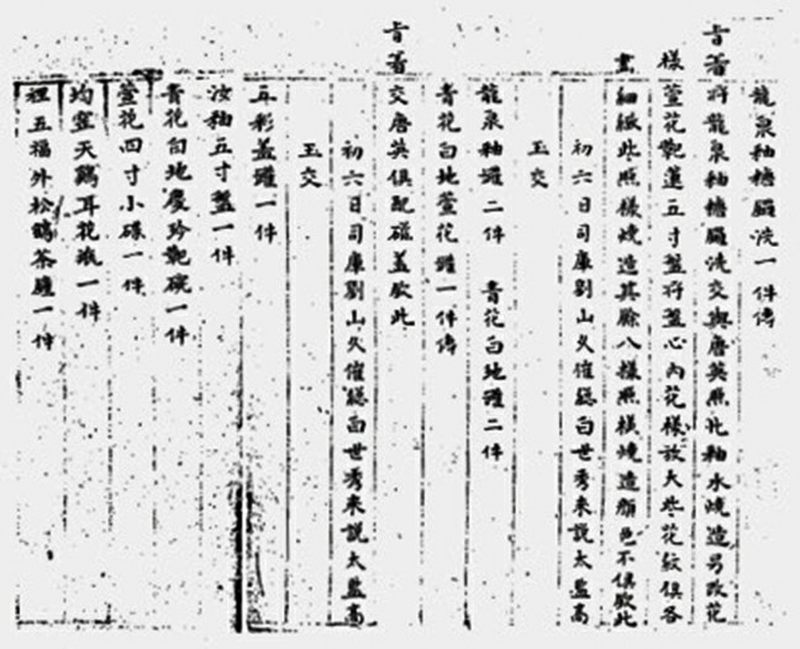 龍泉釉檐㘰洗一件傳
旨着將龍泉釉檐㘰洗交與唐英照此釉水燒造另改花
樣萱花靶蓮五寸盤將盤心內花樣放大些花紋俱各
畫細緻些照樣燒造其餘八樣照樣燒造顏色不俱欽此
初六日司庫劉山久催總白世秀來說太監高
玉交
龍泉釉罐二件 青花白地罐二件
青花白地萱花罐一件傳
旨着交唐英俱配磁蓋欽此
初六日司庫劉山久催總白世秀來說太監高
玉交
五彩蓋罐一件
汝釉五寸盤一件
青花白地慶珍靶碗一件
萱花四寸小碟一件
均窑天鷄耳花瓶一件
裡五福外松鶴茶鍾一件